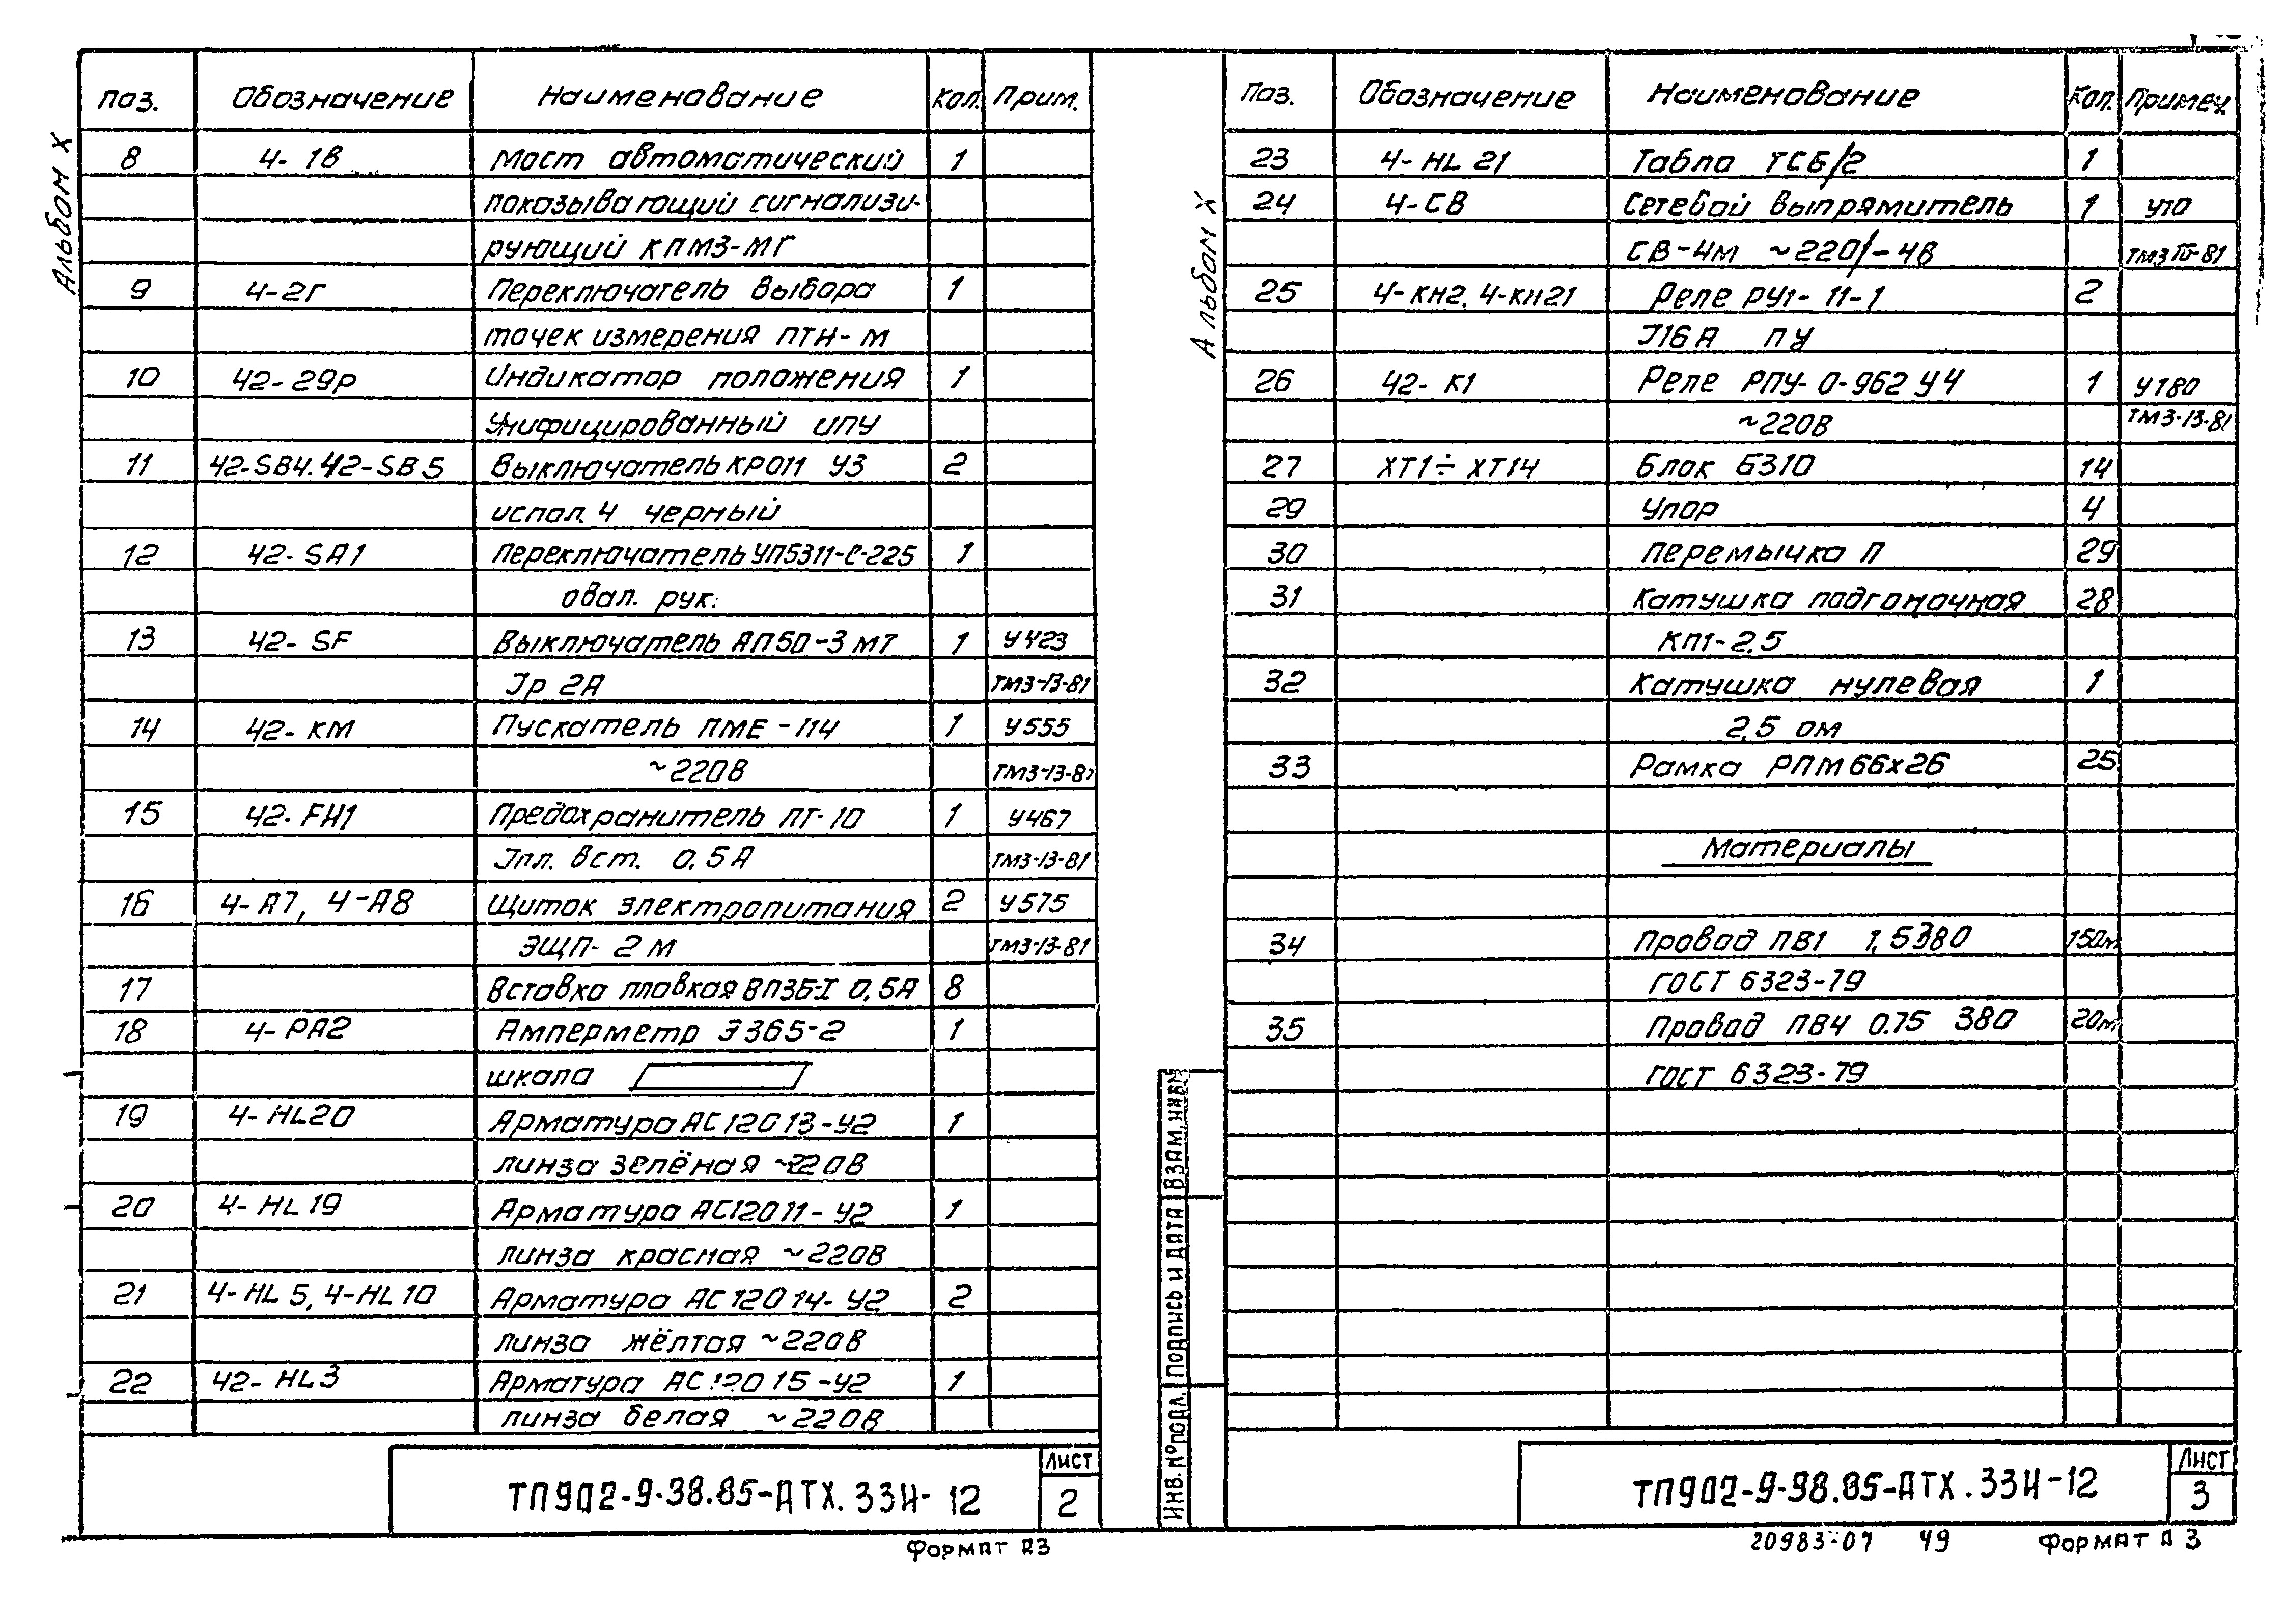 Альбом X
Поз. Обозначение Наименование Кол. Прим.
8 4-1в Мост автоматический 1
показывающий сигнализи-
рующий КПМЗ-МГ
9 4-2г Переключатель выбора 1
точек измерения ПТИ-М
10 42-29р Индикатор положения 1
Унифицированный ИПУ
11 42-SB4. 42-SB5 Выключатель КРО11 У3 2
испол. 4 черный
12 42-SA1 Переключатель УП5311-С-225 1
овал. рук.
13 42-SF Выключатель АП50-3МТ 1 У423
Jр 2А ТМ3-13-81
14 42-КМ Пускатель ПМЕ-114 1 У555
~220В ТМ3-13-81
15 42-FH1 Предохранитель ПТ-10 1 У467
Jпл. вст. 0,5А ТМ3-13-81
16 4-А7, 4-А8 Щиток электропитания 2 У575
ЭЩП-2м ТМ3-13-81
17 Вставка плавкая ВПЗБ-I 0,5А 8
18 4-РА2 Амперметр Э365-2 1
шкала
19 4-HL20 Арматура АС12013-У2 1
линза зелёная ~220В
20 4-HL19 Арматура АС12011-У2 1
линза красная ~220В
21 4-HL5, 4-HL10 Арматура АС12014-У2 2
линза жёлтая ~220В
22 42-HL3 Арматура АС12015-У2 1
линза белая ~220В
ТП902-9-38.85-АТХ.33И-12
Лист
2
Формат А3
Альбом X
Поз. Обозначение Наименование Кол. Примеч.
23 4-HL21 Табло ТСБ/2 1
24 4-СВ Сетевой выпрямитель 1 У10
СВ-4м ~220/-4В ТМ3 IV-81
25 4-КН2, 4-КН21 Реле РУ1-11-1 2
J16А ПУ
26 42-К1 Реле РПУ-0-962 У4 1 У180
~220В ТМ3-13-81
27 ХТ1÷ХТ14 Блок Б310 14
29 Упор 4
30 Перемычка П 29
31 Катушка подгоночная 28
КП1-2,5
32 Катушка нулевая 1
2,5 ом
33 Рамка РПМ 66х26 25
Материалы
34 Провод ПВ1 1,5 380 150м
ГОСТ 6323-79
35 Провод ПВ4 0.75 380 20м
ГОСТ 6323-79
ИНВ.№ПОДЛ. ПОДПИСЬ И ДАТА ВЗАМ.ИНВ.№
ТП902-9-38.85-АТХ.33И-12
Лист
3
20983-07 49 Формат А3